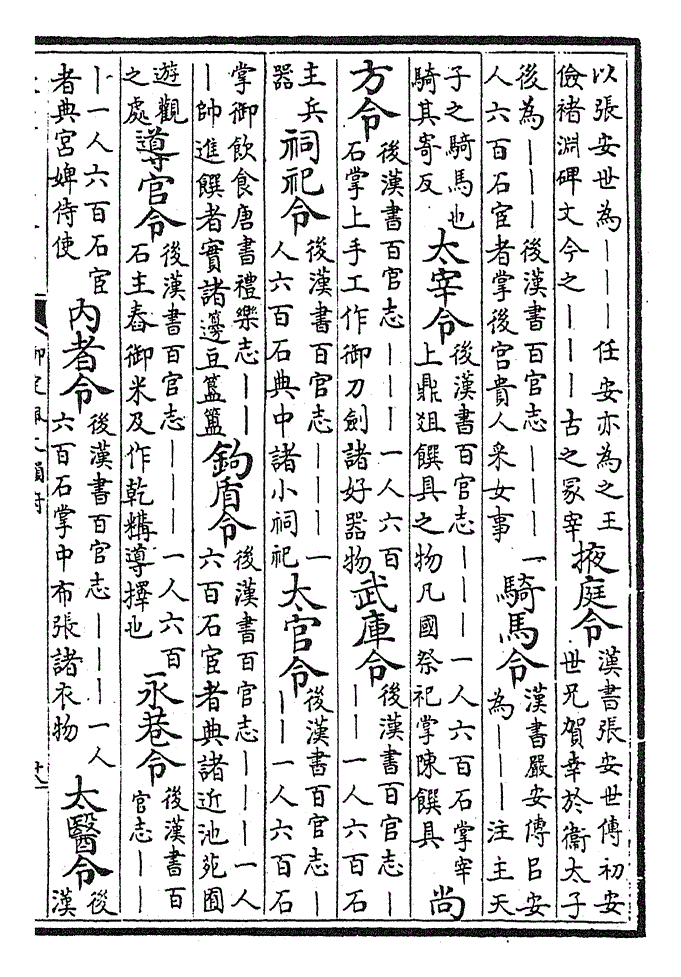 以張安世為丨丨丨任安亦為之王
儉褚淵碑文今之丨丨丨古之冢宰
掖庭令
漢書張安世傳初安
世兄賀幸於衞太子
後為丨丨丨後漢書百官志丨丨丨一
人六百石宦者掌後宮貴人采女事
騎馬令
漢書嚴安傳㠯安
為丨丨丨注主天
子之騎馬也
騎其寄反
太宰令
後漢書百官志丨丨丨一人六百石掌宰
上鼎俎饌具之物凡國祭祀掌陳饌具
尚
方令
後漢書百官志丨丨丨一人六百
石掌上手工作御刀劍諸好器物
武庫令
後漢書百官志丨
丨丨一人六百石
主兵
器
祠祀令
後漢書百官志丨丨丨一
人六百石典中諸小祠祀
太官令
後漢書百官志丨
丨丨一人六百石
掌御飲食唐書禮樂志丨丨
丨帥進饌者實諸籩豆簠簋
鉤盾令
後漢書百官志丨丨丨一人
六百石宦者典諸近池苑囿
遊觀
之處
導官令
後漢書百官志丨丨丨一人六百
石主舂御米及作乾糒導擇也
永巷令
後漢書百
官志丨丨
丨一人六百石宦
者典宮婢侍使
內者令
後漢書百官志丨丨丨一人
六百石掌中布張諸衣物
太醫令
後
漢